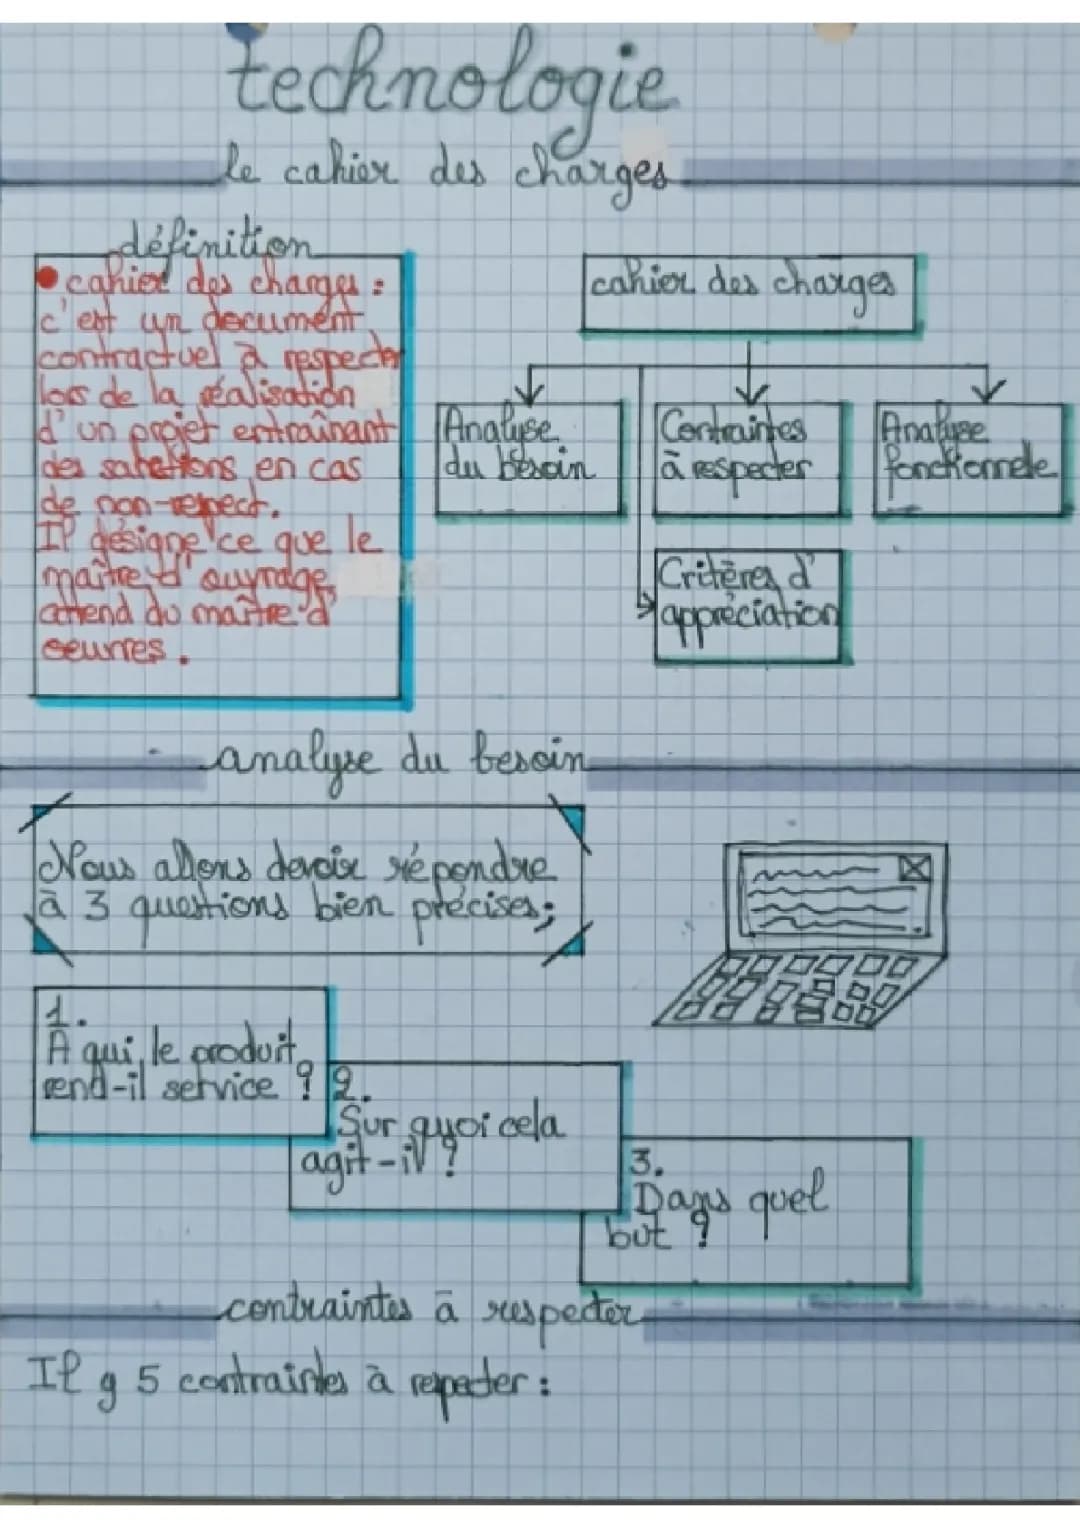 technologie
le cahier des charges
définition
• cahier des charges :
c'est un document
contractuel à respecter
lors de la réalisation
d'un projet entraînant
des sanctions en cas
de non-respect.
Il désigne ce que le
maître d'ouvrage
attend du maître d'
oeuvres.
cahier des charges
Analyse
du besoin
Contraintes
à respecter
Analyse
fonctionnelle
Critères d'
appréciation
analyse du besoin
Nous allons devoir répondre
à 3 questions bien précises :
1.
A qui le produit
rend-il service ?
2.
Sur quoi cela
agit-il ?
3.
Dans quel
but ?
contraintes à respecter
Il y 5 contraintes à respecter :